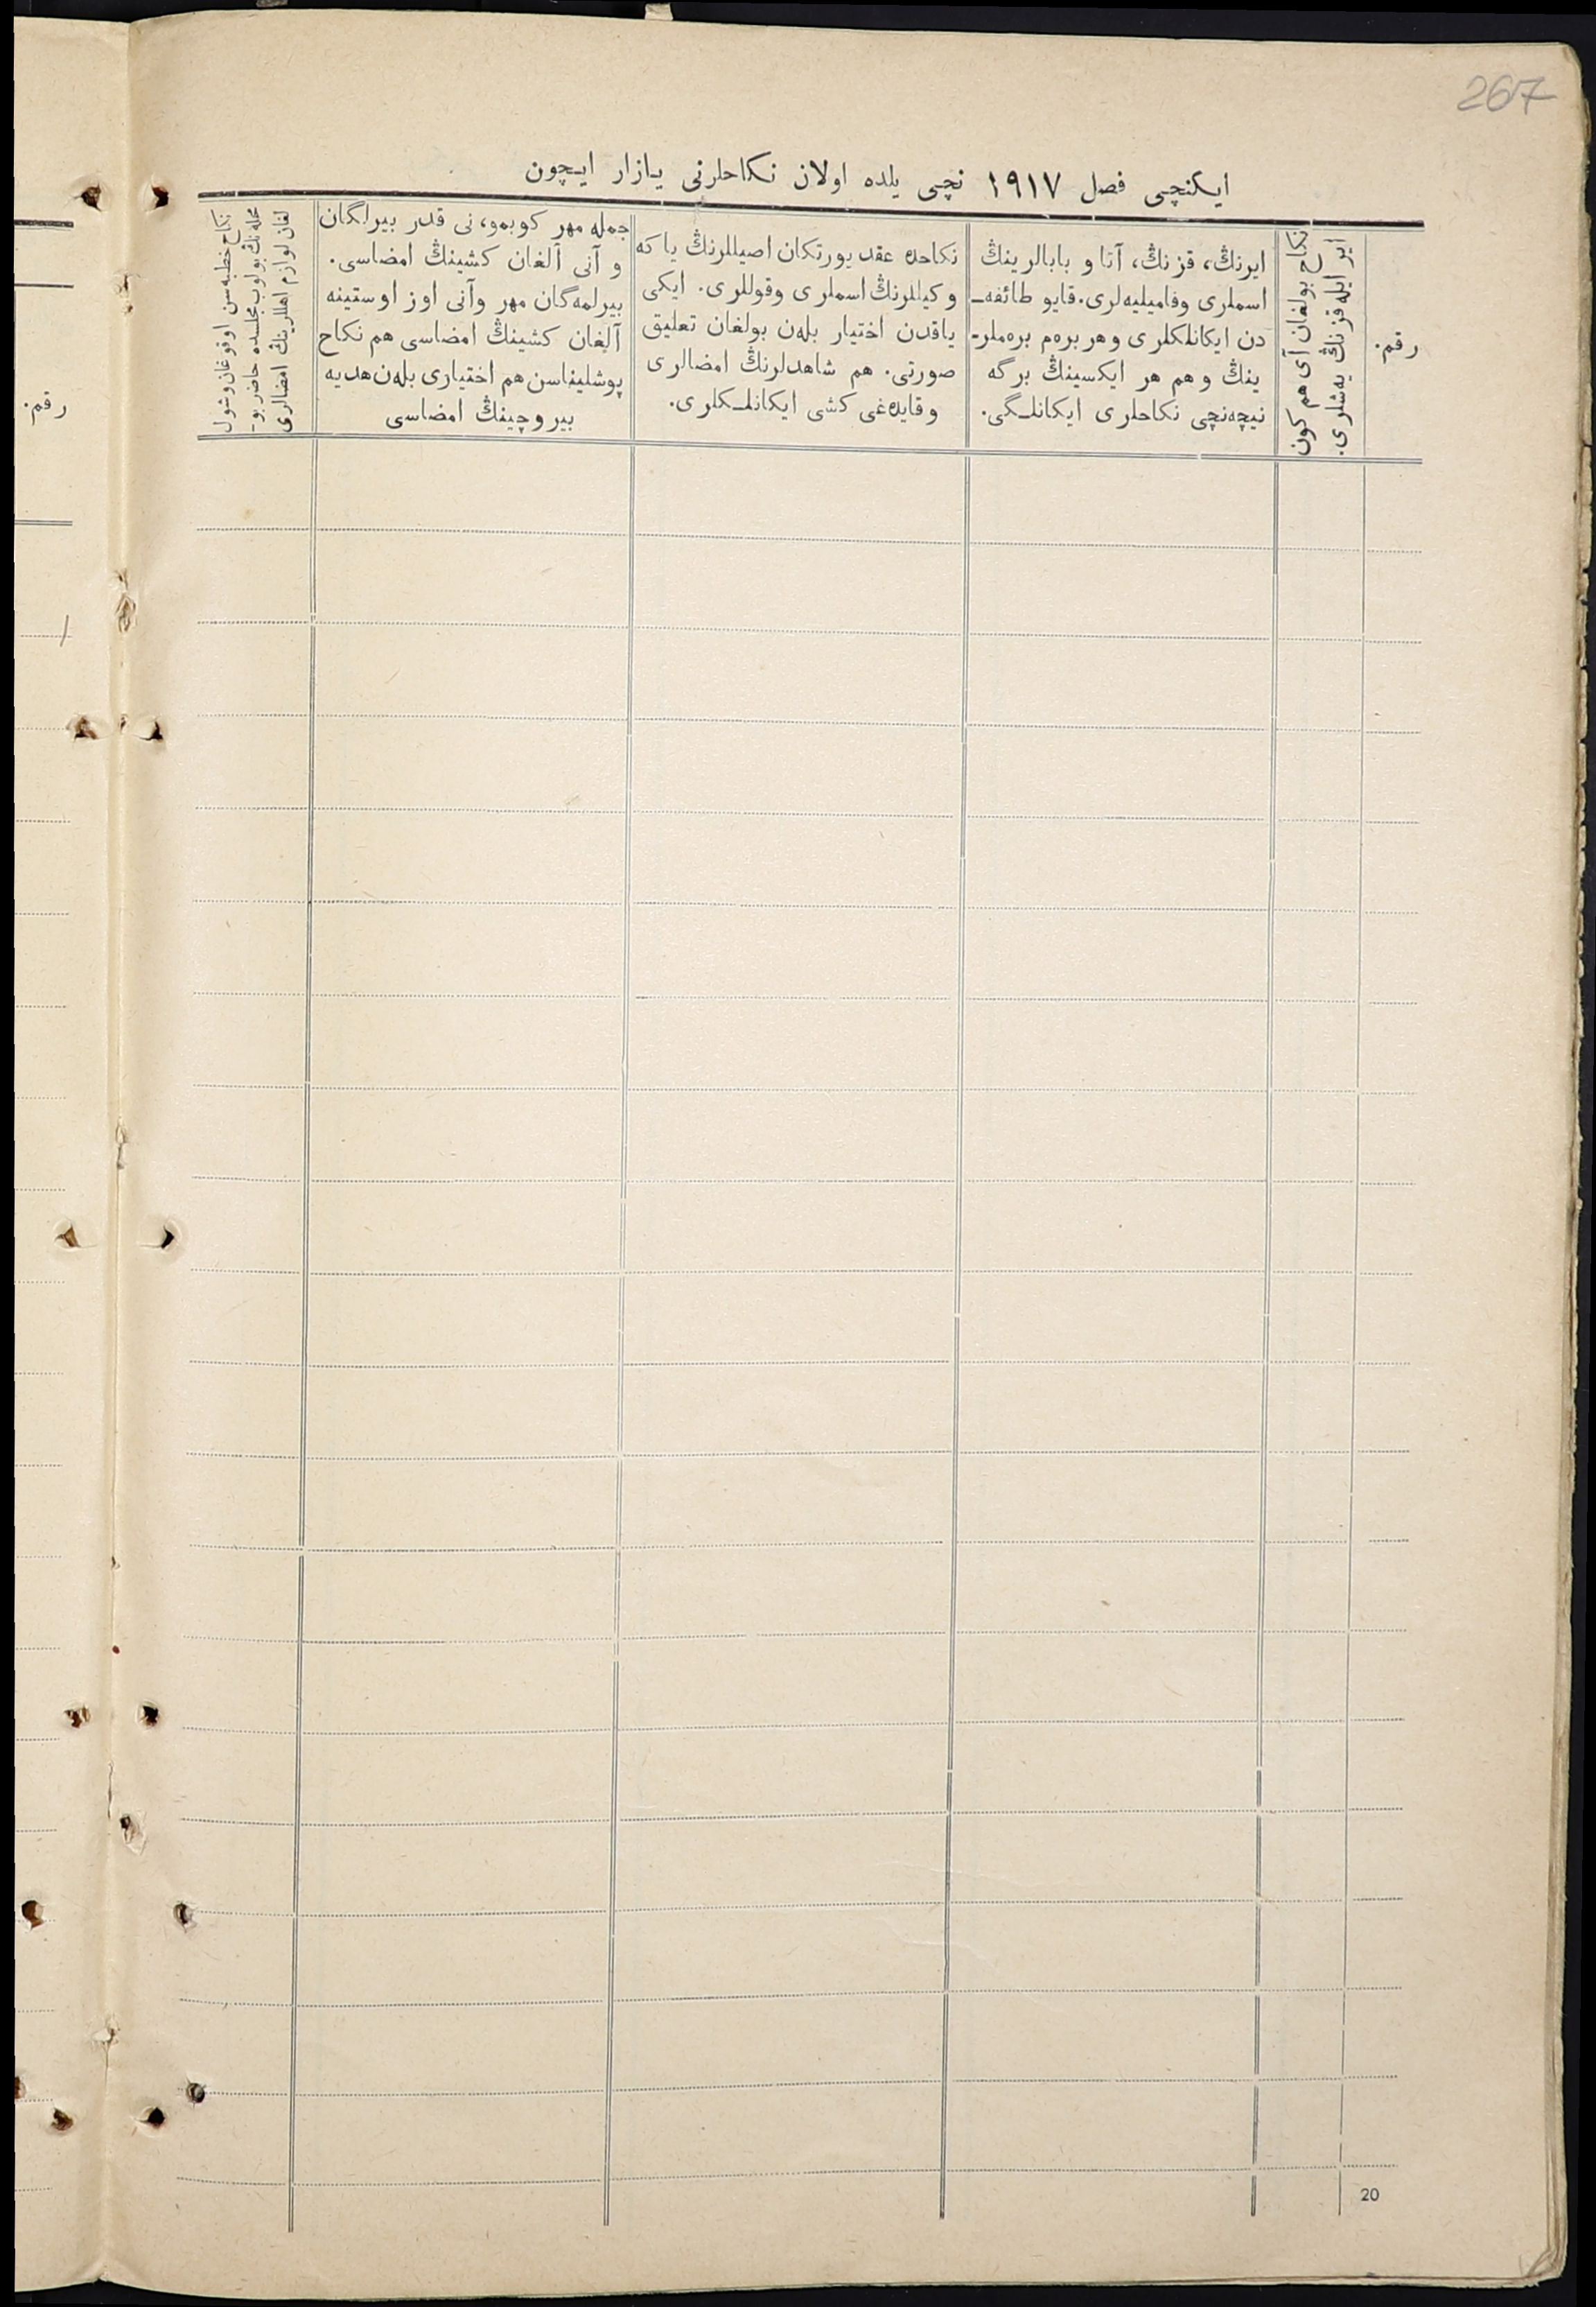 267
ایکنچی فصل ١٩١٧ نچی یلده اولان نکاحلرنی یازار ایچون
رقم.
نکاح بولغان آی هم کون
ایر ایله قزنڭ یه‌شلری.
ایرنڭ، قزنڭ، آتا و بابالرینڭ
اسملری وفامیلیه‌لری. قایو طائفه‌ـ
دن ایکانلکلری وهر بره‌م بره‌ملرـ
ینڭ وهم هر ایکسینڭ برگه
نیچه‌نچی نکاحلری ایکانلـگی.
نکاحده عقد یورتکان اصیللرنڭ یا که
وکیللرنڭ اسملری وقوللری. ایکی
یاقدن اختیار بله‌ن بولغان تعلیق
صورتی. هم شاهدلرنڭ امضالری
وقایده‌غی کشی ایکانلـکلری.
جمله مهر کوبمو، نی قدر بیرلگان
و آنی آلغان کشینڭ امضاسی.
بیرلمه‌گان مهر وآنی اوز اوستینه
آلغان کشینڭ امضاسی هم نکاح
پوشلیناسن هم اختیاری بله‌ن هدیه
بیروچینڭ امضاسی
نکاح خطبه‌سن اوقوغان وشول
محله‌نڭ بولوب مجلسده حاضر بوـ
لغان لوازم اهللرینڭ امضالری
20
رقم.
١